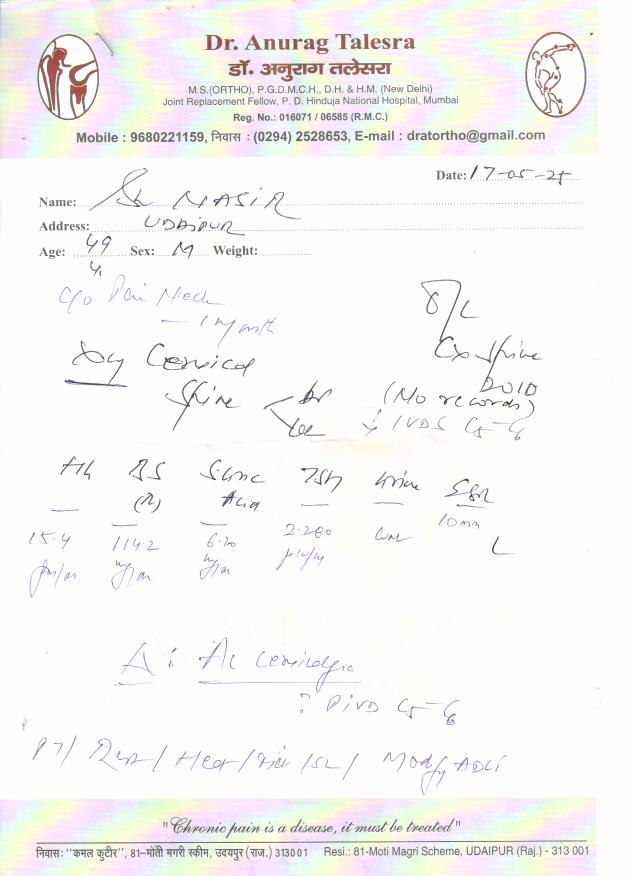 Dr. Anurag Talesra
डॉ. अनुराग तलेसरा
M.S.(ORTHO), P.G.D.M.C.H., D.H. & H.M. (New Delhi)
Joint Replacement Fellow, P. D. Hinduja National Hospital, Mumbai
Reg. No.: 016071 / 06585 (R.M.C.)
Mobile : 9680221159, निवास : (0294) 2528653, E-mail : dratortho@gmail.com
Date: 17-05-25
Name: NASIR
Address: UDAIPUR
Age: 49 Sex: M Weight:
C/o Pain Neck
- 1 month
Cx Spine
2010
(No records)
IVDS C5-C6
Xray Cervical
Spine
Hb BS S.Uric TSH Urine ESR
(R) Acid
15.4 114.2 6.20 2.280 10mm
gm/dl mg/dl mg/dl
PIVD C5-C6
Rest / Heat / Modify ADLs
"Chronic pain is a disease, it must be treated"
निवास: "कमल कुटीर", 81-मोती मगरी स्कीम, उदयपुर (राज.) 313001 Resi.: 81-Moti Magri Scheme, UDAIPUR (Raj.) - 313 001